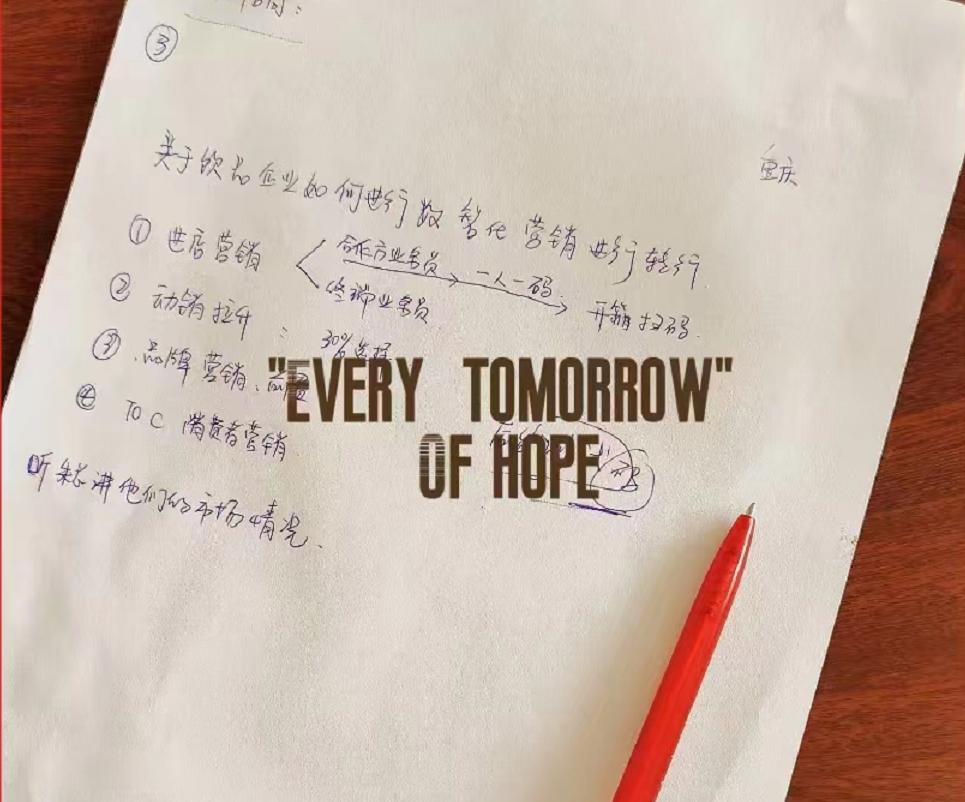 ③
重庆
关于饮品企业如何进行数智化营销进行转行
① 进店营销 合作方业务员 一人一码
终端业务员 开箱扫码
② 动销拉升: 30%选择
③ 品牌营销、品
④ TO C 消费者营销
听 讲他们的市场情况.
"EVERY TOMORROW"
OF HOPE